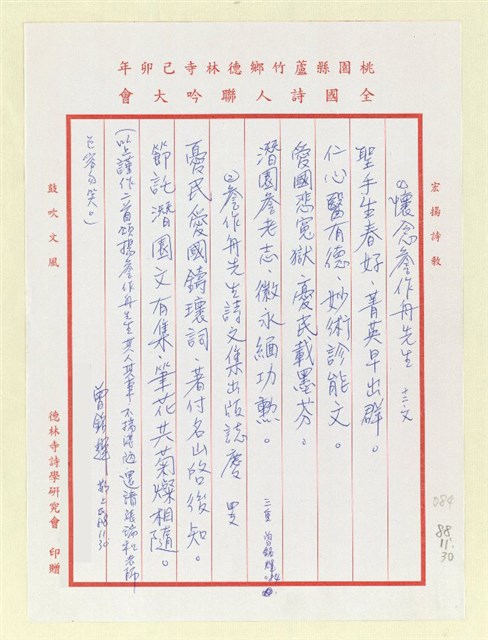 桃園縣蘆竹鄉德林寺己卯年
全國詩人聯吟大會
宏揚詩教
(1)懷念詹作舟先生 十二文
聖手生春好、菁英早出群。
仁心醫有德、妙術診能文。
愛國悲冤獄、憂民載墨芬。
潛園詹老志、徽永緬功勳。
三重 曾銘輝
(2)詹作舟先生詩文集出版誌慶 四支
憂民愛國鑄瓌詞、著付名山啓後知。
節託潛園文有集、筆花共菊燦相隨。
(以上謹作二首頌揚詹作舟先生其人其事 不揚得 還請張瑞和老師
包容勿笑。)
曾銘輝 敬上 88.11.30
鼓吹文風
德林寺詩學研究會 印贈
084
88
11.
30